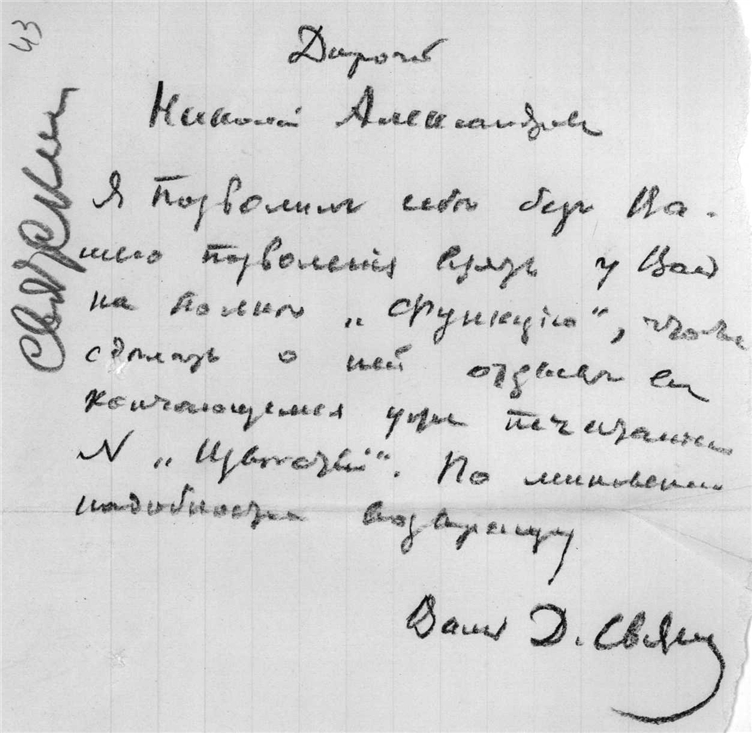 43
Святский
Дорогой
Николай Александров
Я позволил себѣ безъ Ва-
шего позволенія взять у Васъ
на полкѣ „Функцію“, чтобы
сдѣлать о ней отзывъ въ
кончающемся уже печатаніи
N „
По миновеніи
надобности возвращу
Вашъ Д. Святск